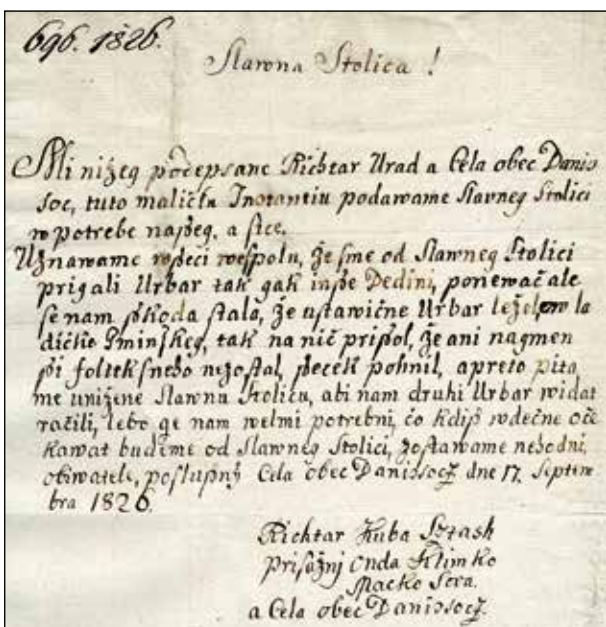 696. 1826.
Slawna Stolica!
Mi nižeg podepsane Richtar Urad a Cela obec Danis
soc, tuto maličku Instantiu podawame Slawneg Stolici
w potrebe naßeg. a sice.
Uznawame wßeci wespolu, že sme od Slawneg Stolici
prigali Urbar tak gak inße Dedini, poniewač ale
se nam sskoda stala, že ustawične Urbar ležel w la
dičke tak na nič prißol, že ani nagmen
ßi folteksneho nezostal, pohnil, a preto pita
me unižene Slawnu Stolicu, abi nam druhi Urbar widat
račili, lebo ge nam welmi potrebni, čo kdiß wdečne oče
kawat budeme od Slawneg Stolici, zostawame nehodni,
obiwatele, poslußný Cela obec Danissocz dne 17. Septem
bra 1826.
Richtar Kuba Sztash
Prisažnj Onda Klimko
Macko Sera.
a Cela obec Danissocz.